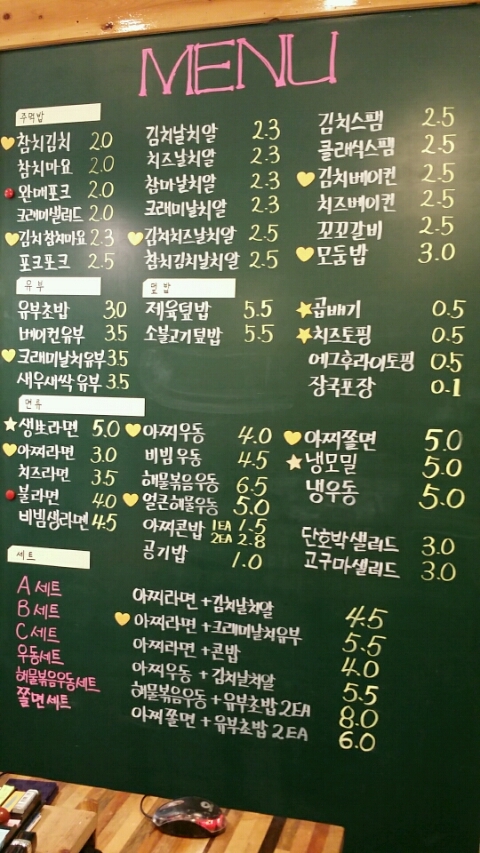 MENU
주먹밥
참치김치 2.0
참치마요 2.0
완매포크 2.0
크래미샐러드 2.0
김치참치마요 2.3
포크포크 2.5
김치날치알 2.3
치즈날치알 2.3
참마날치알 2.3
크래미날치알 2.3
김치치즈날치알 2.5
참치김치날치알 2.5
김치스팸 2.5
클래식스팸 2.5
김치베이컨 2.5
치즈베이컨 2.5
꼬꼬갈비 2.5
모둠밥 3.0
유부
유부초밥 3.0
베이컨유부 3.5
크래미날치유부 3.5
새우새싹유부 3.5
덮밥
제육덮밥 5.5
소불고기덮밥 5.5
곱배기 0.5
치즈토핑 0.5
에그후라이토핑 0.5
장국포장 0.1
면류
생뽀라면 5.0
아찌라면 3.0
치즈라면 3.5
불라면 4.0
비빔생라면 4.5
아찌우동 4.0
비빔우동 4.5
해물볶음우동 6.5
얼큰해물우동 5.0
아찌콘밥 1EA 1.5
2EA 2.8
공기밥 1.0
아찌쫄면 5.0
냉모밀 5.0
냉우동 5.0
단호박샐러드 3.0
고구마샐러드 3.0
세트
A세트 아찌라면+김치날치알 4.5
B세트 아찌라면+크래미날치유부 5.5
C세트 아찌라면+콘밥 4.0
우동세트 아찌우동+김치날치알 5.5
해물볶음우동세트 해물볶음우동+유부초밥2EA 8.0
쫄면세트 아찌쫄면+유부초밥2EA 6.0